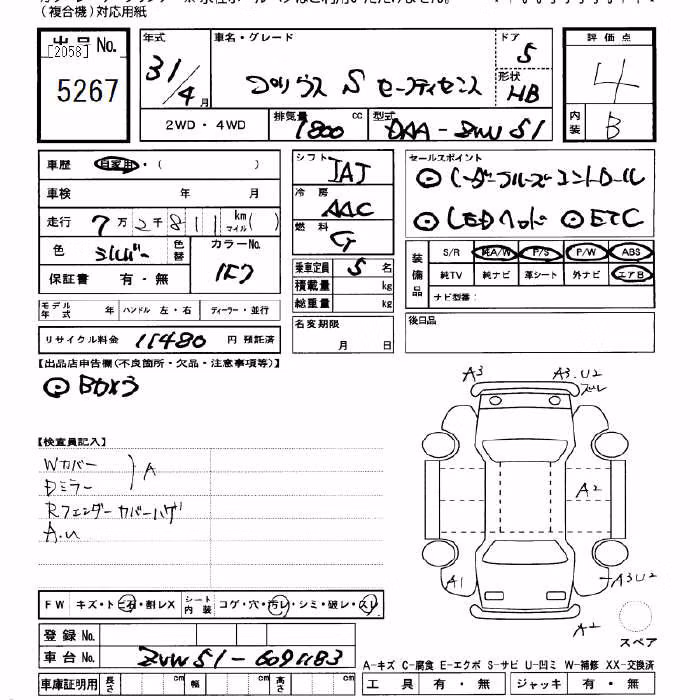 （複合機）対応用紙
出品No.
[2058]
5267
年式
31/4月
車名・グレード
プリウス S セーフティセンス
ドア
5
形状
HB
評価点
4
内装
B
2WD・4WD
排気量
1800 cc
型式
DAA-ZVW51
車歴 自家用・( )
車検 年 月
走行 7万2千811 km マイル( )
色 シルバー 色替
カラーNo.
1F7
保証書 有・無
シフト
IAT
冷房
AAC
燃料
G
乗車定員 5 名
積載量 kg
総重量 kg
セールスポイント
◎レーダークルーズコントロール
◎LEDヘッド ◎ETC
装備品
S/R 純A/W P/S P/W ABS
純TV 純ナビ 革シート 外ナビ エアB
ナビ型番：
モデル年式 年 ハンドル 左・右 ディーラー・並行
リサイクル料金 11480 円 預託済
名変期限
月 日
後日品
【出品店申告欄(不良箇所・欠品・注意事項等)】
◎BOXラ
【検査員記入】
Wカバー
Dミラー
A
Rフェンダーカバーハゲ
A.U
A3
A3.U2
ズレ
A2
A1
A3U2
スペア
FW キズ・トビ石・割レX
シート内装 コゲ・穴・汚レ・シミ・破レ・スレ
登録No.
車台No. ZVW51-6091183
A-キズ C-腐食 E-エクボ S-サビ U-凹ミ W-補修 XX-交換済
車庫証明用 長さ cm 幅 cm 高さ cm
工具 有・無 ジャッキ 有・無